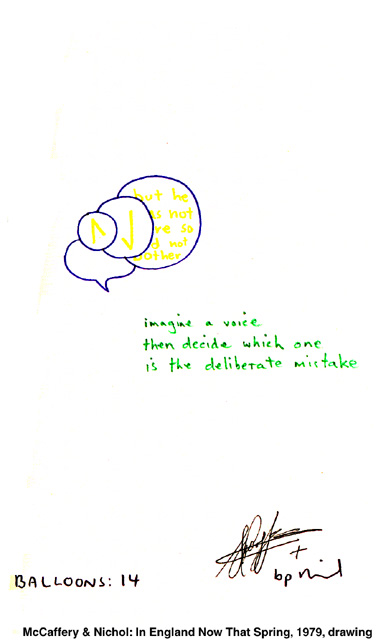 but he
as not
re so
d not
bother
imagine a voice
then decide which one
is the deliberate mistake
+
bp
BALLOONS: 14
McCaffery & Nichol: In England Now That Spring, 1979, drawing